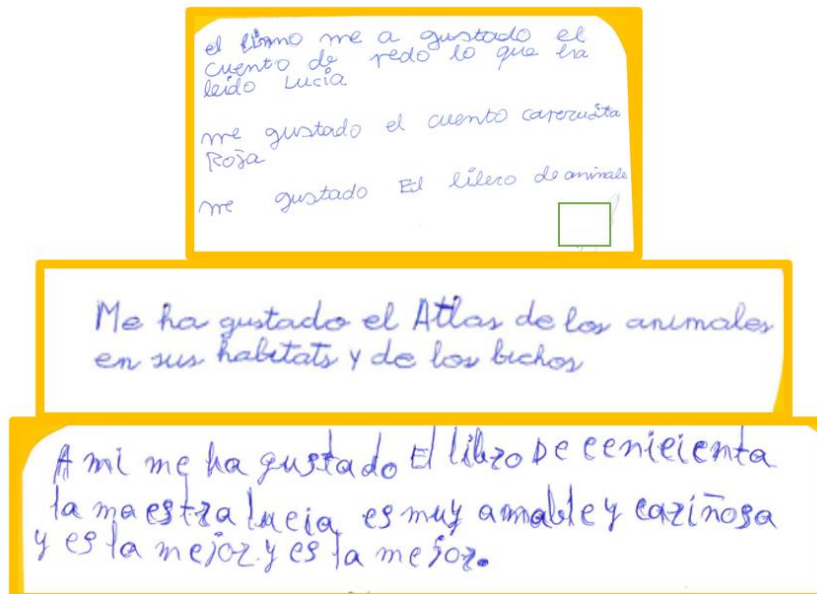 el me a gustado el
cuento de redo lo que ha
leido Lucía
me gustado el cuento caperusita
Roja
me gustado El lilero de animale
Me ha gustado el Atlas de los animales
en sus habitats y de los bichos
A mi me ha gustado El libro De cenicienta
la maestra lucia es muy amable y cariñosa
y es la mejor y es la mejor.